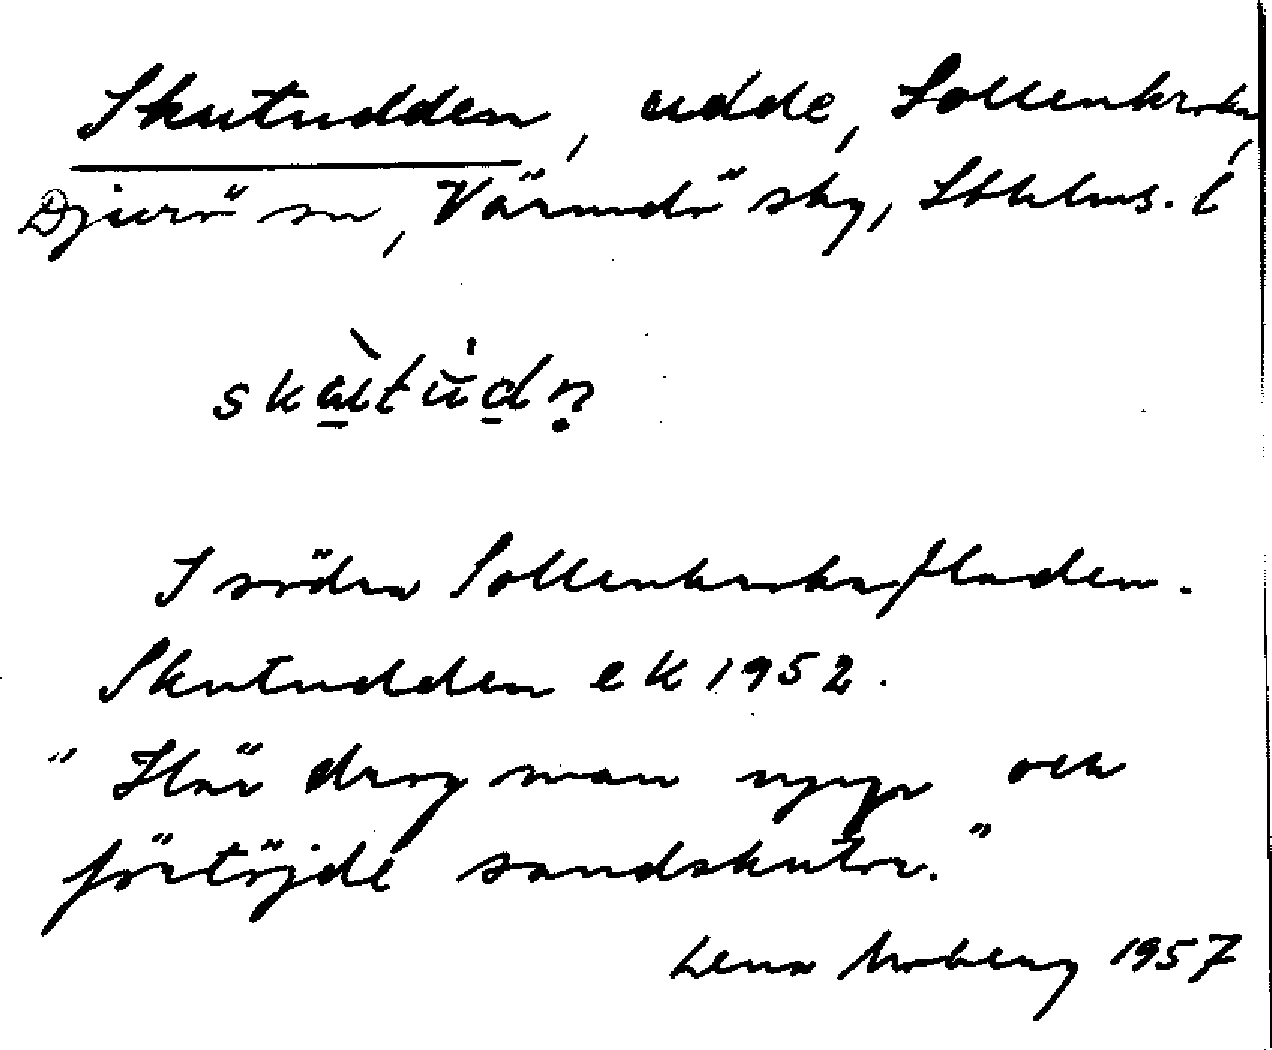 Skutudden, udde, Sollenkroka,
Djurö sn, Värmdö sky, Sthlms. l
skɯ̀tŭ̍dṇ
I södra Sollenkrokafladen.
Skutudden ek 1952.
"Här drog man upp och
förtöjde sandskutor."
Lena Moberg 1957